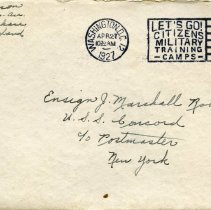 WASHINGTON, D.C.
APR 27
10 AM
1927
LET'S GO!
CITIZENS
MILITARY
TRAINING
CAMPS
Ensign J. Marshall
U.S.S. Concord
c/o Postmaster
New York